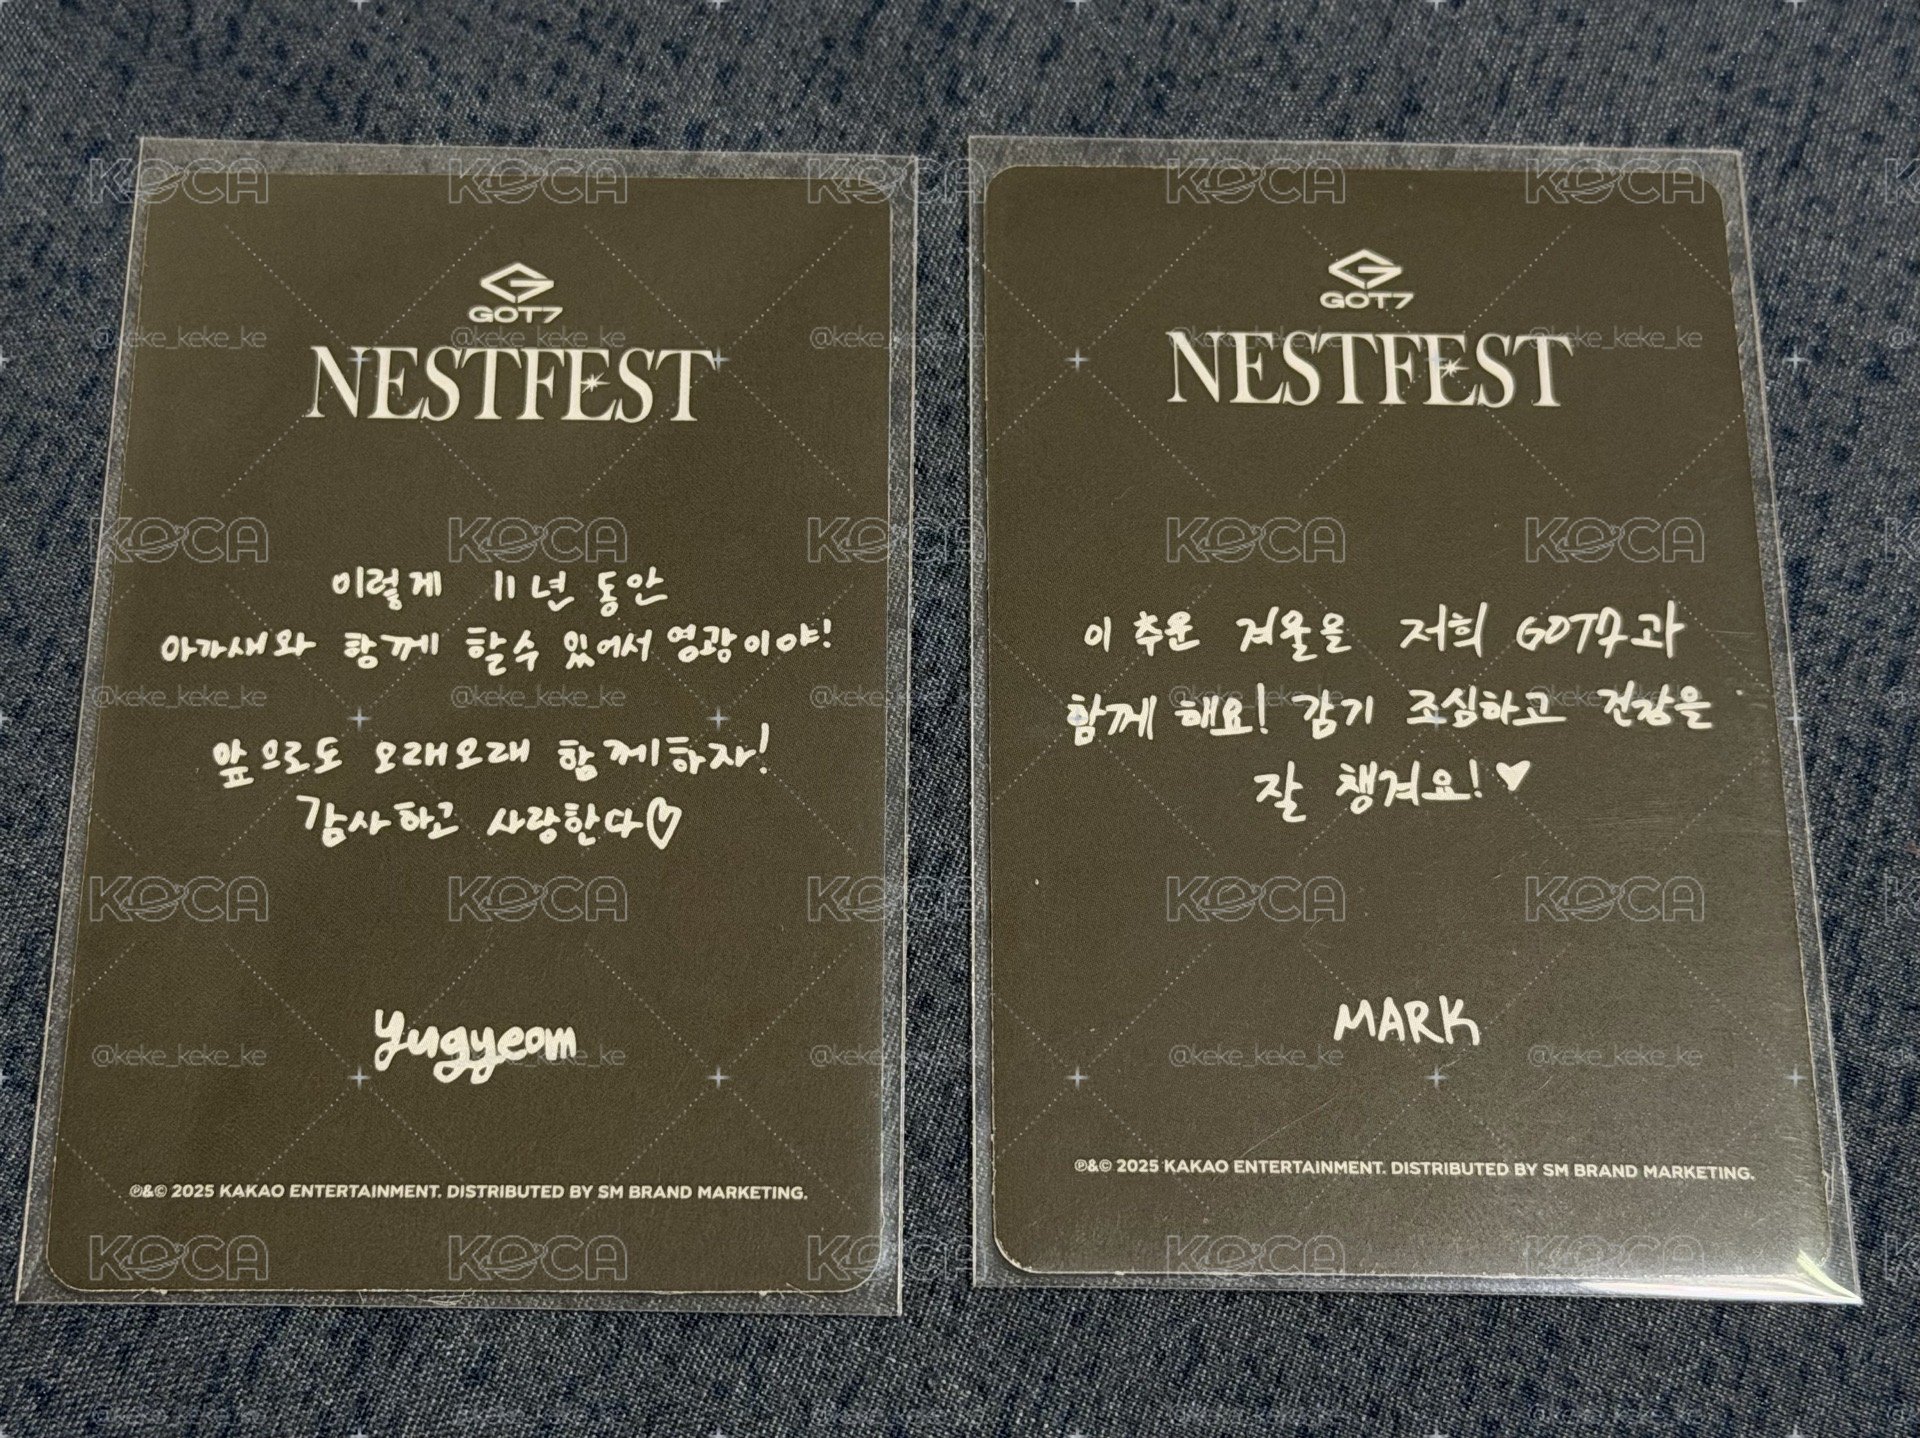 GOT7
NESTFEST
이렇게 11년 동안
아가새와 함께 할수 있어서 영광이야!
앞으로도 오래오래 함께하자!
감사하고 사랑한다♡
Yugyeom
℗&© 2025 KAKAO ENTERTAINMENT. DISTRIBUTED BY SM BRAND MARKETING.
GOT7
NESTFEST
이 추운 겨울을 저희 GOT7과
함께 해요! 감기 조심하고 건강을
잘 챙겨요!♥
MARK
℗&© 2025 KAKAO ENTERTAINMENT. DISTRIBUTED BY SM BRAND MARKETING.
KOCA
@keke_keke_ke